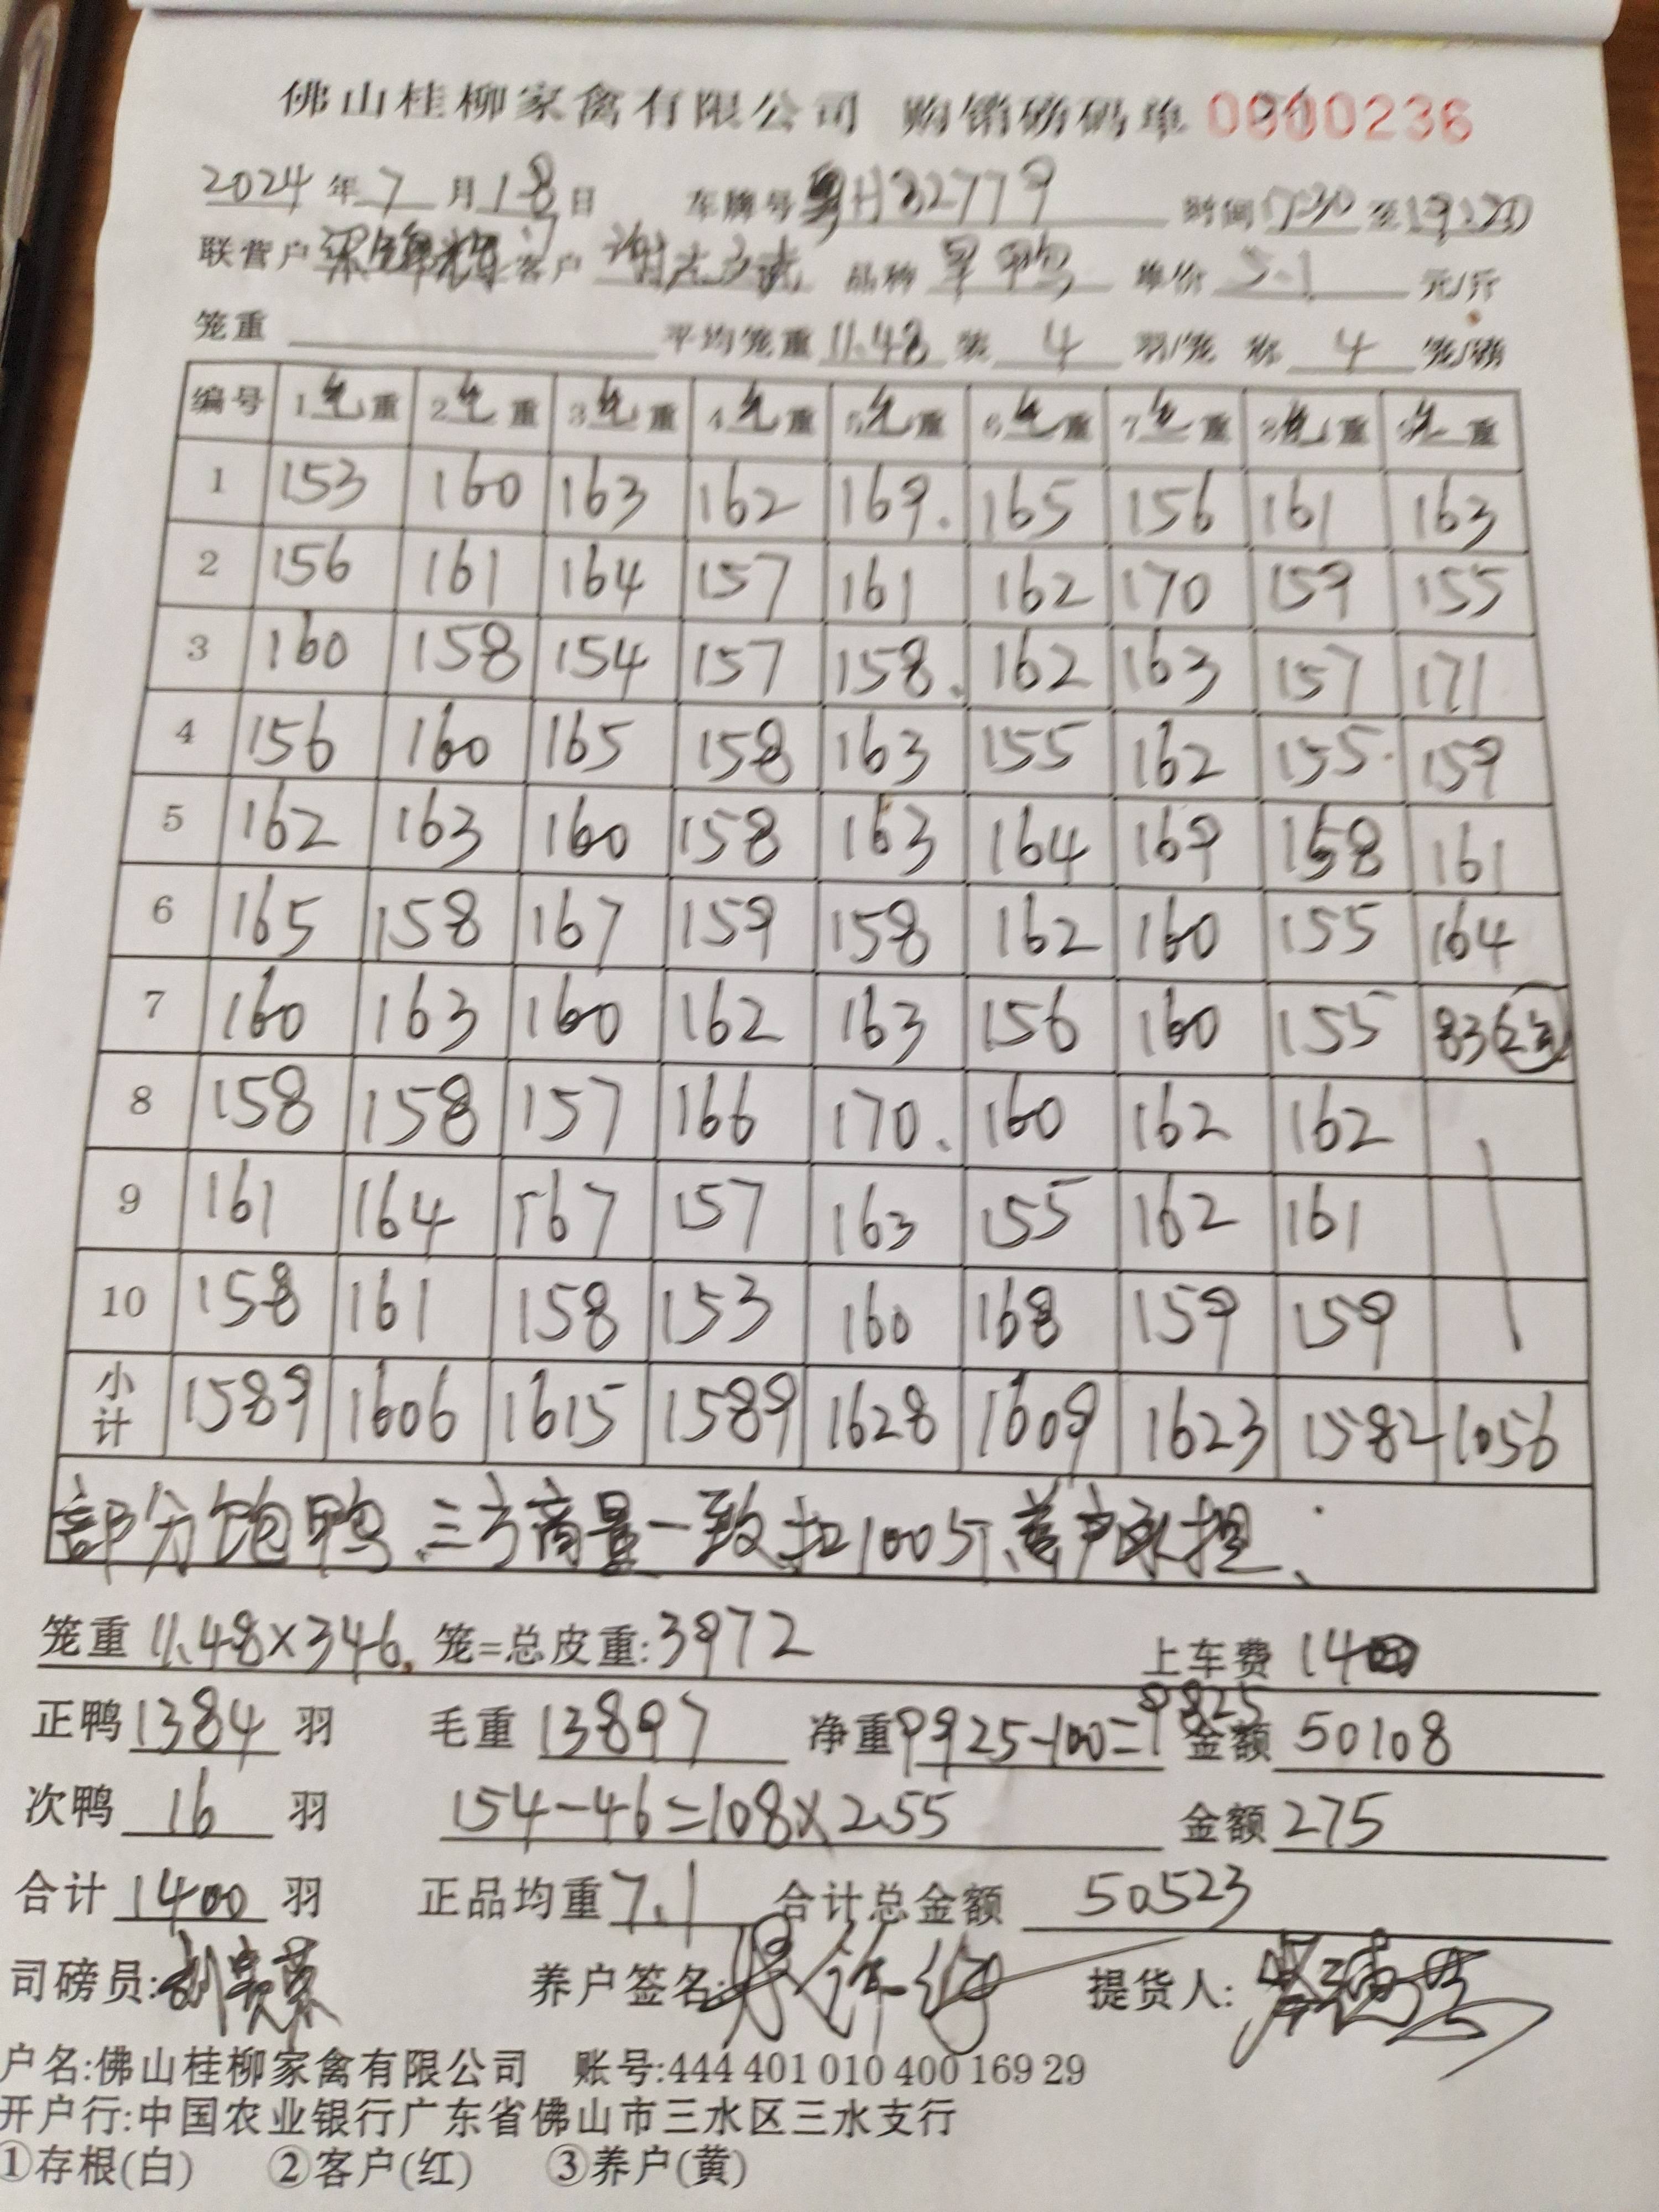 佛山桂柳家禽有限公司 购销磅码单 0000236
2024年7月18日 车牌号粤H82779 时间17:30至19:20
联营户 客户 谢 品种 单价5.1元/斤
笼重 平均笼重11.48装4羽/笼 称4笼/磅
编号 1笔重 2笔重 3笔重 4笔重 5笔重 6笔重 7笔重 8笔重 9笔重
1 153 160 163 162 169. 165 156 161 163
2 156 161 164 157 161 162 170 159 155
3 160 158 154 157 158. 162 163 157 171
4 156 160 165 158 163 155 162 155. 159
5 162 163 160 158 163 164 169 158 161
6 165 158 167 159 158 162 160 155 164
7 160 163 160 162 163 156 160 155 83
8 158 158 157 166 170. 160 162 162
9 161 164 167 157 163 155 162 161
10 158 161 158 153 160 168 159 159
小计 1589 1606 1615 1589 1628 1609 1623 1582 1056
部分饱鸭、三方商量一致扣100斤、养户承担、
笼重11.48×346.笼=总皮重:3972 上车费 140
正鸭1384羽 毛重13897 净重9925-100=9825 金额50108
次鸭16羽 154-46=108×2.55 金额275
合计1400羽 正品均重7.1 合计总金额 50523
司磅员: 养户签名: 提货人:
户名:佛山桂柳家禽有限公司 账号:444 401 010 400 169 29
开户行:中国农业银行广东省佛山市三水区三水支行
①存根(白) ②客户(红) ③养户(黄)